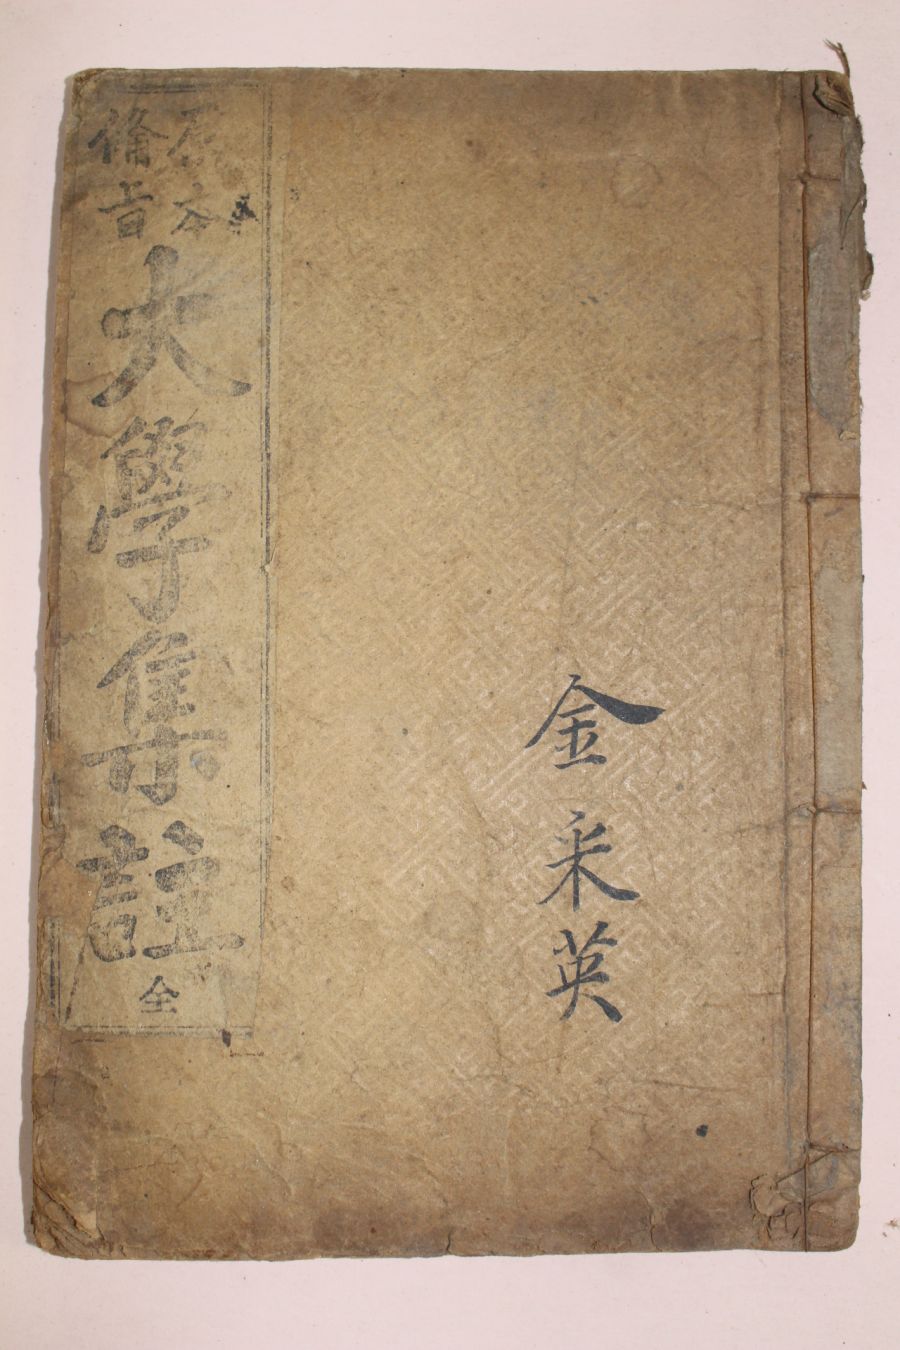 金采英
原本
備旨
大學集註
全